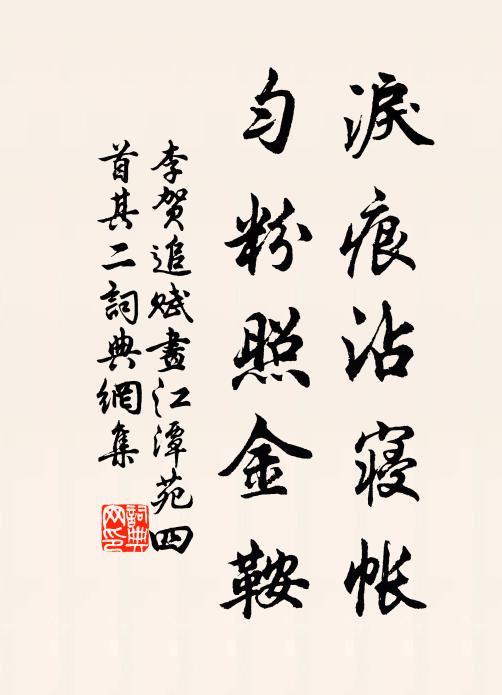 淚痕沾寝帐
匀粉照金鞍
李贺追赋畫江潭苑四
首其二詞典網集
詞典
网印